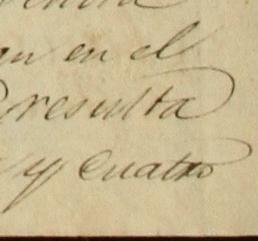 en el
resulta
y cuatro